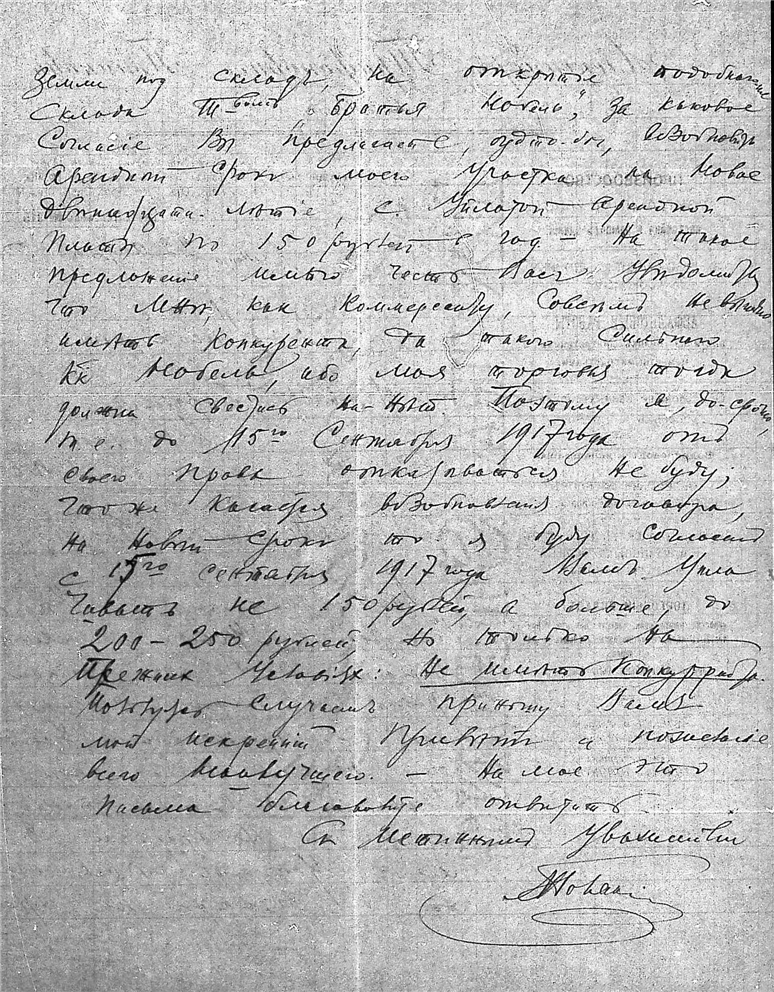 Земли под складъ, на открытие подобнаго
Склада Т-вомъ "Братья Нобель", за каковое
Согласіе Вы предлагаете, будто-бы, возобновить
Арендный Срокъ моего Участка на Новое
двѣнадцати-лѣтіе, с. Уплатой Арендной
Платы по 150 рублей в год — На такое
предложеніе имѣю честь Васъ Увѣдомить,
Что Мнѣ, как Коммерсанту, Совсѣмъ не выгодно
имѣть Конкурента, да такого Сильнаго
Кк Нобель, ибо моя торговля тогда
должна Свестись на-нѣтъ. Поэтому я, до-срока,
т. е. до 15го Сентября 1917 года отъ
своего Права отказываться не буду;
Что же касается возобновленія договора,
На Новый Срокъ то я буду Согласенъ
с 15го Сентября 1917 года Вамъ Упла
Чивать не 150 рублей, а больше, до
200 — 250 рублей, Но только На
Прежних Условіях: Не имѣть Конкурента.
Пользуясь Случаемъ приношу Вамъ
мой искренній Привѣтъ и пожеланіе
всего Наилучшего. — На мое это
письмо благоволите отвѣтить
Съ Истиннымъ Уваженіем